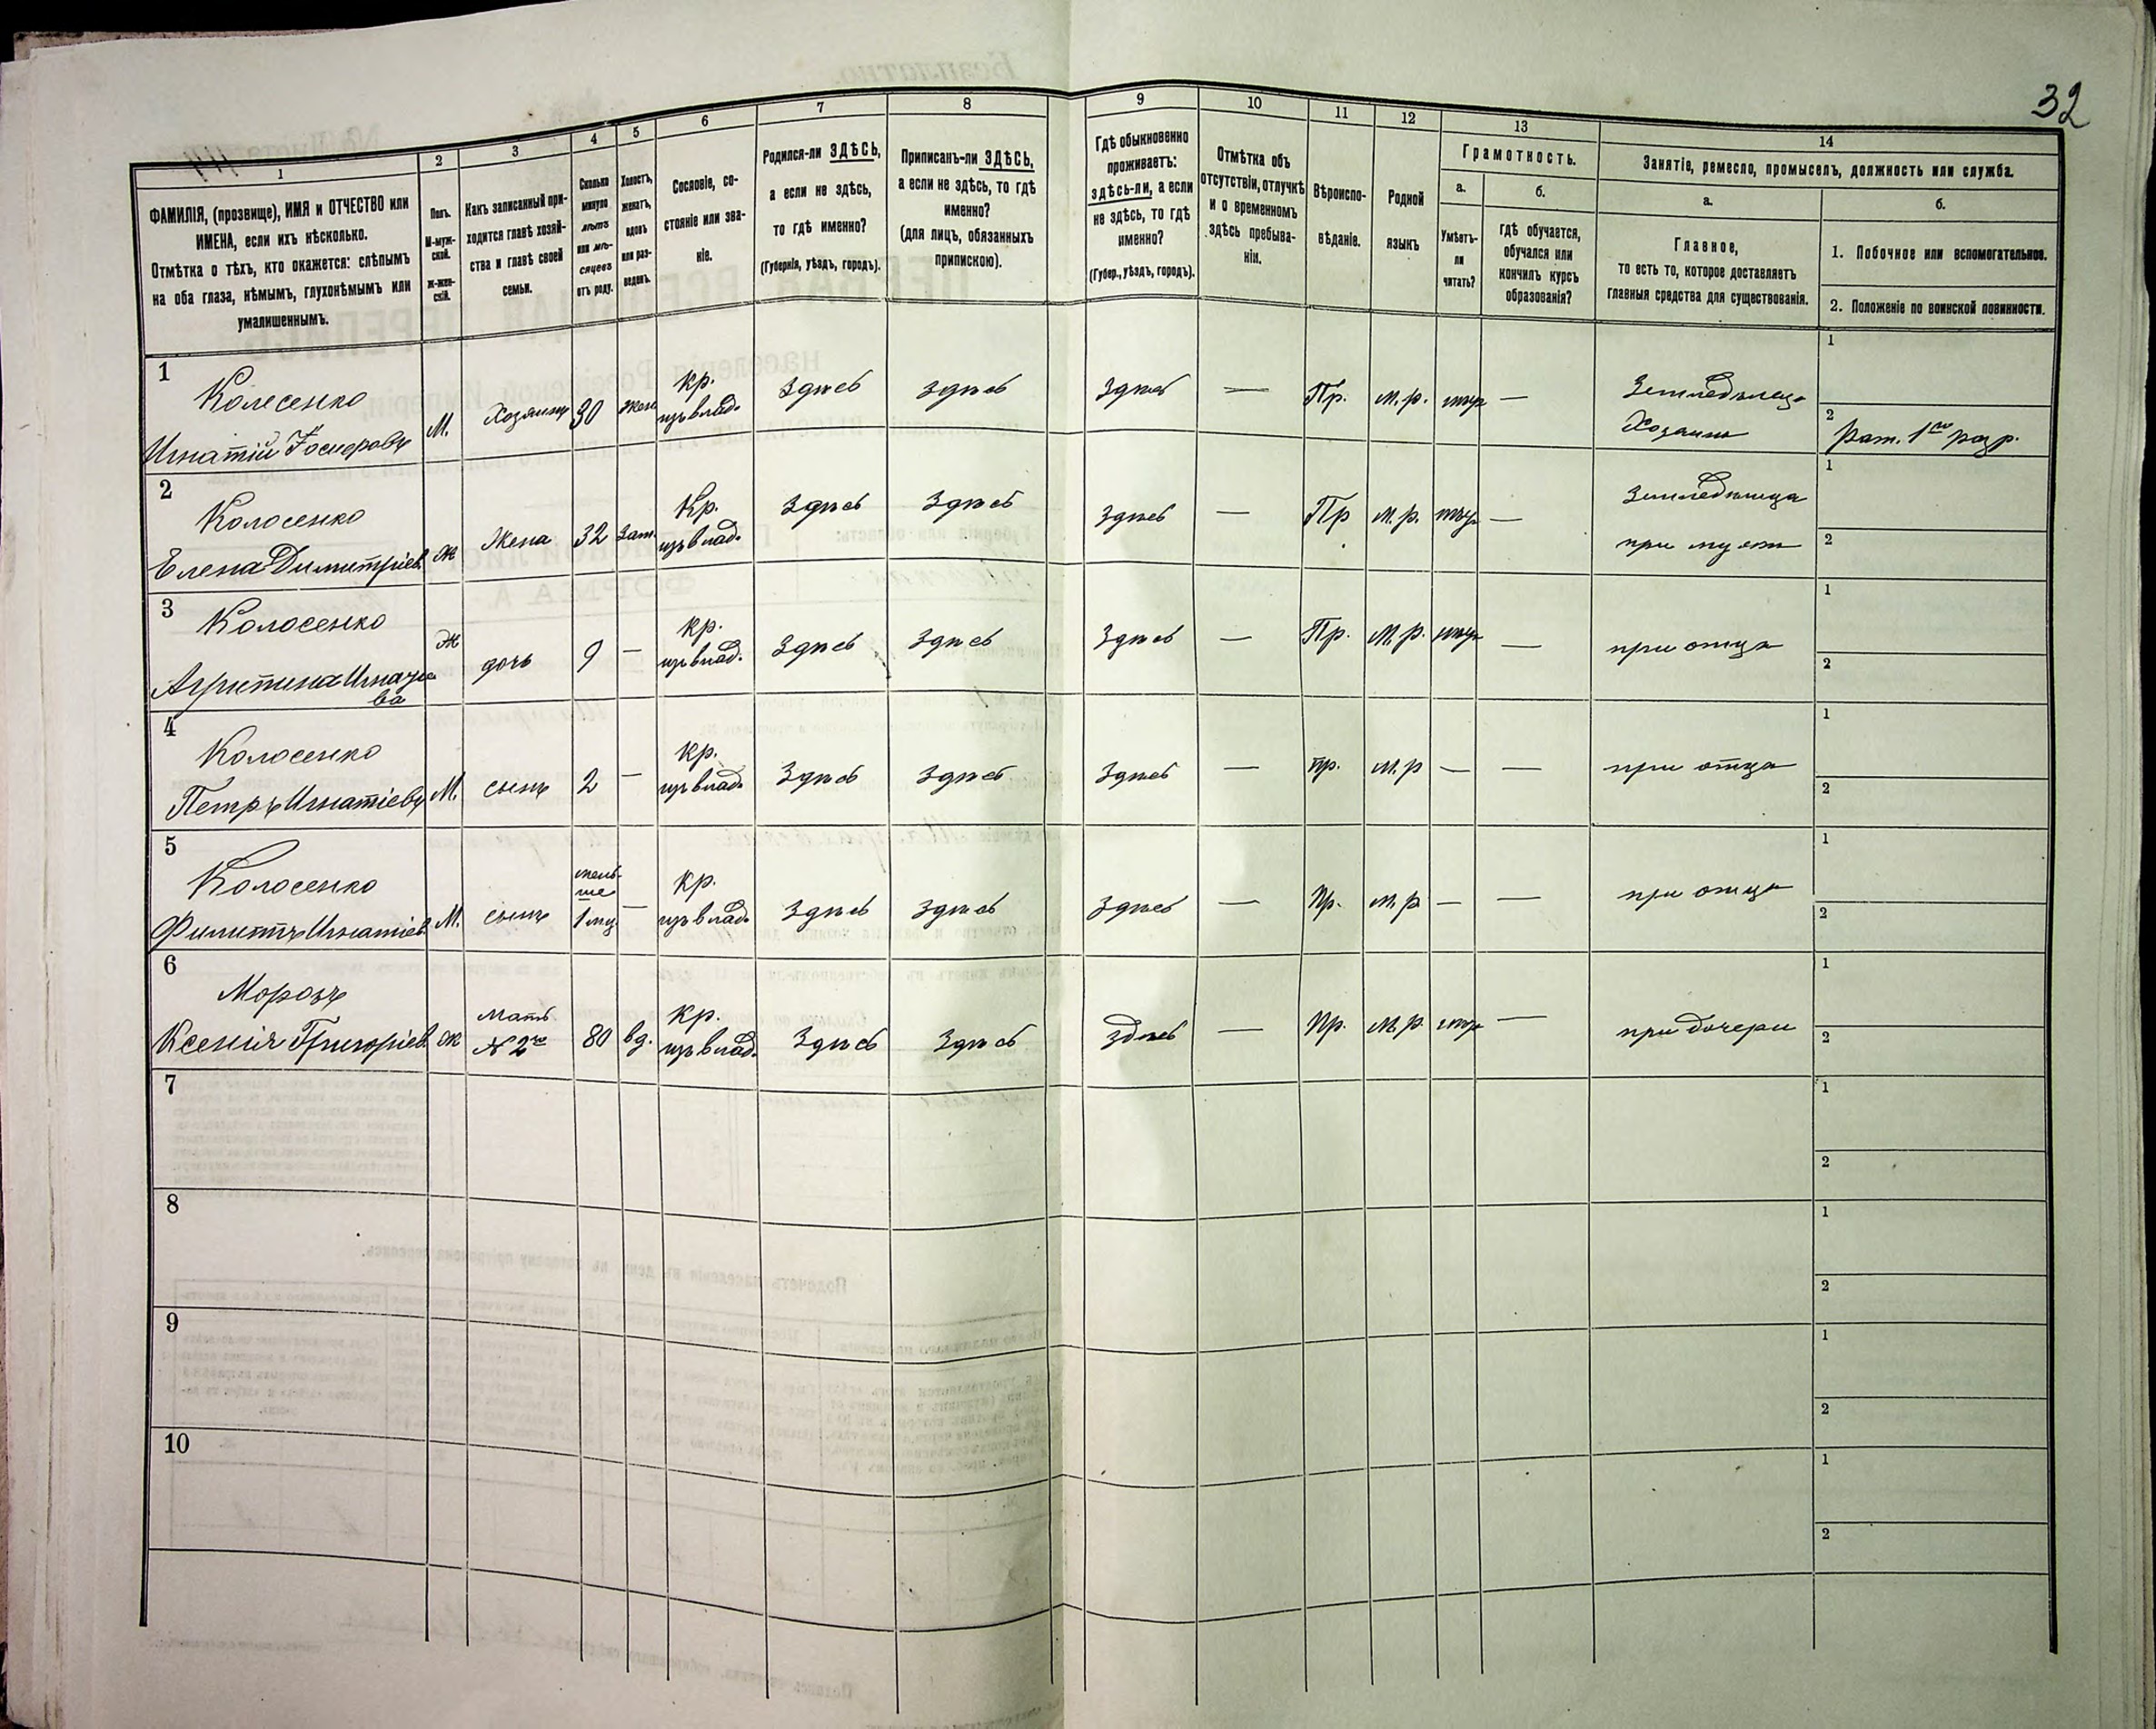 32
1
2
3
4
5
6
7
8
9
10
11
12
13
14
ФАМИЛІЯ, (прозвище), ИМЯ и ОТЧЕСТВО или
ИМЕНА, если ихъ нѣсколько.
Отмѣтка о тѣхъ, кто окажется: слѣпымъ
на оба глаза, нѣмымъ, глухонѣмымъ или
умалишеннымъ.
Полъ.
М-муж-
ской.
Ж-жен-
скій.
Какъ записанный при-
ходится главѣ хозяй-
ства и главѣ своей
семьи.
Сколько
минуло
лѣтъ
или мѣ-
сяцевъ
отъ роду.
Холостъ,
женатъ,
вдовъ
или раз-
веденъ.
Сословіе, со-
стояніе или зва-
ніе.
Родился-ли ЗДѢСЬ,
а если не здѣсь,
то гдѣ именно?
(Губернія, уѣздъ, городъ).
Приписанъ-ли ЗДѢСЬ,
а если не здѣсь, то гдѣ
именно?
(для лицъ, обязанныхъ
припискою).
Гдѣ обыкновенно
проживаетъ:
здѣсь-ли, а если
не здѣсь, то гдѣ
именно?
(Губер., уѣздъ, городъ).
Отмѣтка объ
отсутствіи, отлучкѣ
и о временномъ
здѣсь пребыва-
ніи.
Вѣроиспо-
вѣданіе.
Родной
языкъ
Грамотность.
а.
б.
Умѣетъ-
ли
читать?
гдѣ обучается,
обучался или
кончилъ курсъ
образованія?
Занятіе, ремесло, промыселъ, должность или служба.
а.
б.
Главное,
то есть то, которое доставляетъ
главныя средства для существованія.
1. Побочное или вспомогательное.
2. Положеніе по воинской повинности.
1
Колесенко
Игнатій Іосифовъ
М.
Хозяинъ
30
жен
кр.
изъ влад.
Здѣсь
здѣсь
Здѣсь
—
Пр.
м.р.
нѣтъ
—
Земледѣлец
Хозяинъ
1
2
Рат. 1го разр.
2
Колосенко
Елена Димитріев.
Ж
Жена
32
Зам.
Кр.
изъ влад.
Здѣсь
Здѣсь
Здѣсь
—
Пр
м.р.
нѣтъ
—
Земледѣлица
при мужѣ
1
2
3
Колосенко
Агрипина Игнатіе
ва
Ж
дочь
9
—
кр.
изъ влад.
Здѣсь
Здѣсь
Здѣсь
—
Пр.
М.р.
нѣтъ
—
при отцѣ
1
2
4
Колосенко
Петръ Игнатіевъ
М.
сынъ
2
—
кр.
изъ влад.
Здѣсь
Здѣсь
Здѣсь
—
пр.
М.р
—
—
при отцѣ
1
2
5
Колосенко
Филиппъ Игнатіев.
М.
сынъ
мень-
ше
1 мц
—
кр.
изъ влад.
Здѣсь
Здѣсь
Здѣсь
—
Пр.
м.р
—
—
при отцѣ
1
2
6
Морозъ
Ксенія Григоріев.
Ж
Мать
№ 2го
80
вд.
кр.
изъ влад.
Здѣсь
Здѣсь
здѣсь
—
Пр.
М.р.
нѣтъ
—
при дочери
1
2
7
1
2
8
1
2
9
1
2
10
1
2